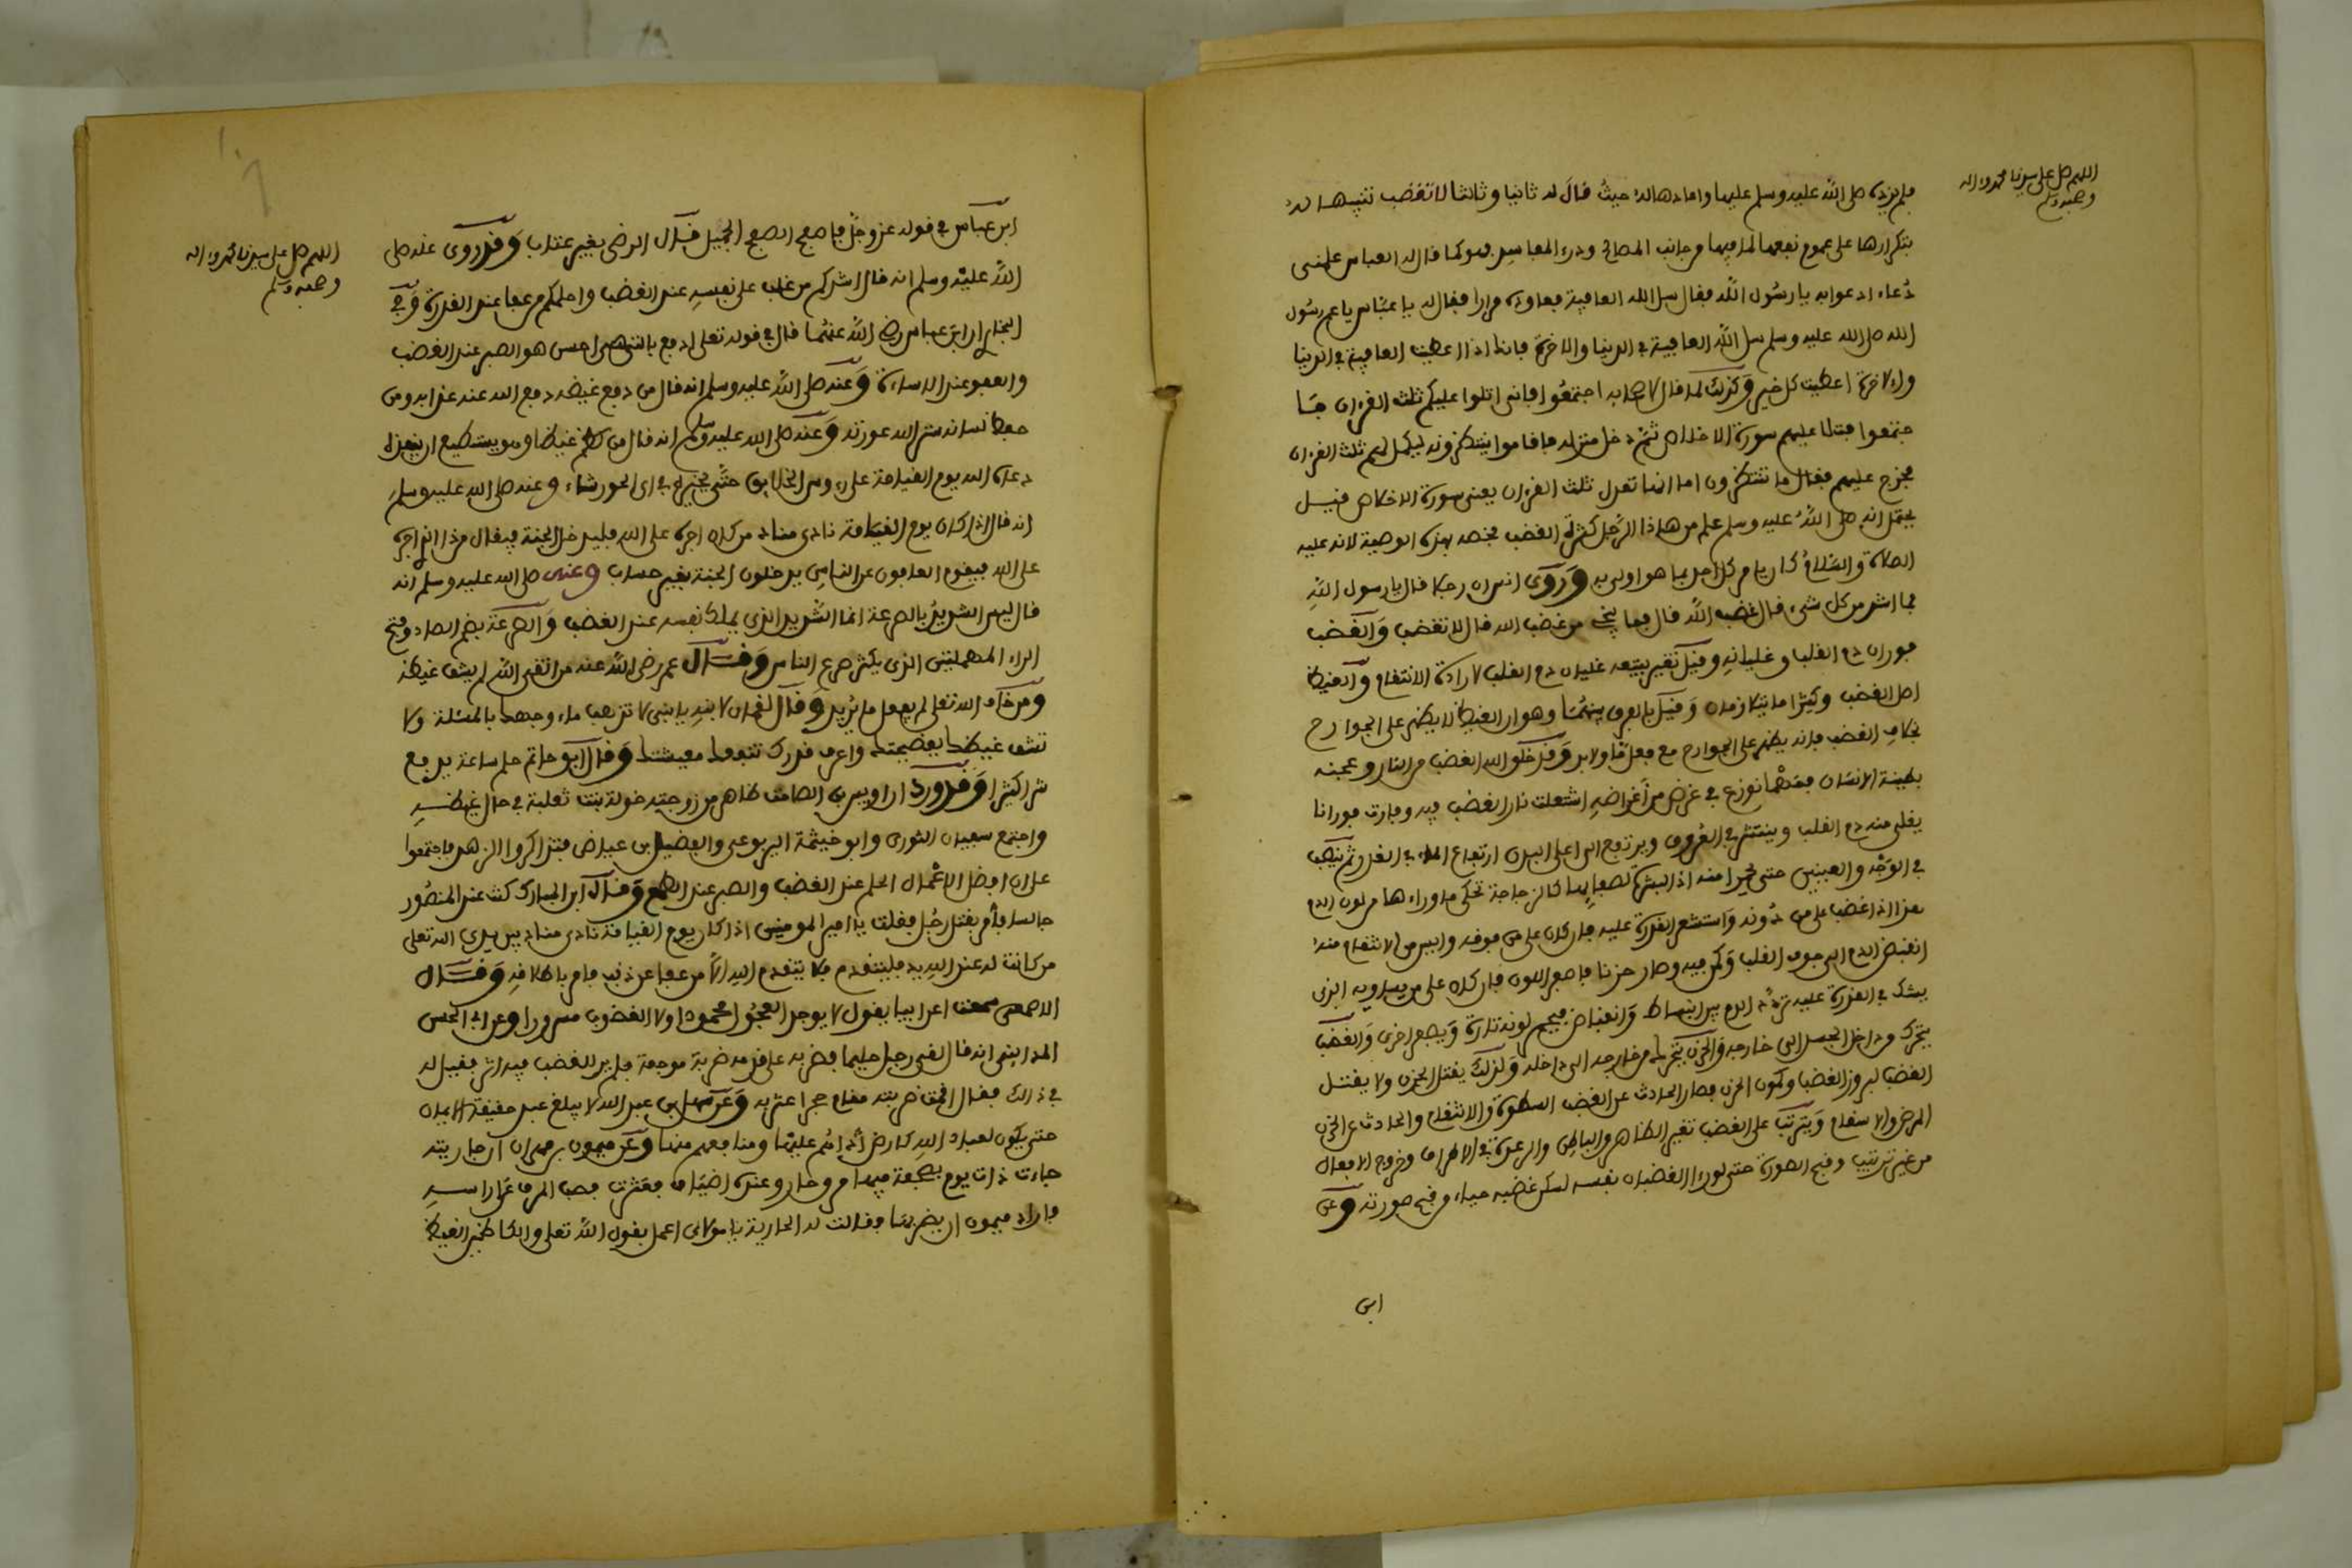 اللهم صل على سيدنا محمد وءاله
وصحبه وسلم
فلم يزده صلى الله عليه وسلم عليها واعادها له حيث قال له ثانيا وثالثا لا تغضب تنبيها له
بتكرارها على عموم نفعها لما فيها من جانب المصالح ودرء المفاسد فهو كما قال له العباس علمنى
دُعاء ادعوا به يا رسُول الله فقال سل الله العافية فعاوده مرارا فقال له يا عبّاس يا عم رسُول
الله صلى الله عليه وسلم سل الله العافية في الدنيا والاخرة فانك اذا اعطيت العافية في الدنيا
والاخرة اعطيت كل خير وكذلك لما قال لاصحابه اجتمعُوا فانى اتلوا عليكم ثلث القرءان فا
جتمعوا فتلا عليهم سورة الاخلاص ثم دخل منزله فاقاموا ينتظرونه ليكمل لهم ثلث القرءان
فخرج عليهم فقال ما تنتظرون اما انها تعدل ثلث القرءان يعنى سورة الاخلاص فيل
يحتمل انه صلى الله عليه وسلم علم من هاذا الرجل كثرة الغضب فخصه بهذه الوصية لانه عليه
الصلاة والسلامُ كان يامر كل احد بما هو اولى به وروى انس ان رجلا قال يا رسول اللهِ
ما اشد من كل شىء قال غضب الله قال فما ينجى من غضب الله قال لا تغضب والغضب
فوران دم القلب وغليانه وفيل تغير يتبعه غليان دم القلب لارادة الانتقام والغيظ
اصل الغضب وكثيرا ما يتلازمان وفيل بالفرق بينهُما وهو ان الغيظ لا يظهر على الجوارح
بخلاف الغضب فانه يظهر على الجوارح مع فعل مّا ولا بد وقد خلق الله الغضب من النار وعجنه
بطينة الانسان فمهما نوزع في غرض من أغراضهِ اشتعلت نار الغضب فيه وفارت فورانا
يغلى منه دم القلب وينتشر في العُروق ويرتفع الى اعلى البدن ارتفاع الماء في القدر ثم ينصب
في الوَجْه والعينين حتى يحمرا منه اذ البشرة لصفائها كالزجاجة تحكى ما وراءها من لون الدم
هذا اذا غضب على من دُونه واستشعر القدرة عليه فان كان على من فوقه وايس من الانتقام منهُ
انقبض الدم الى جوف القلب وكمن فيه وصار حزنا فاصفر اللون فان كان على من يساويه الذى
يشك في القدرة عليه تردد الدم بين انبساط وانقباض فيحمر لونه تارة ويصفر اخرى والغضب
يتحرك من داخل الجسد الى خارجه والحزن يتحرك من خارجه الى داخله ولذلك يقتل الحزن ولا يقتل
الغضب لبروز الغضب وكمون الحزن فصار الحادث عن الغضب السطوة والانتقام والحادث عن الحزن
المرض والاسقام ويترتب على الغضب تغير الظاهر والباطن والرعدة في الاطراف وخروج الافعال
من غير ترتيب وقبح الصورة حتى لو رءا الغضبان نفسه لسكن غضبه حياء من قبح صورته وعن
ابن
اللهم صل على سيدنا محمد وءاله
وصحبه وسلم
ابن عباس في قوله عز وجل فاصفح الصفح الجميل قال الرضى بغير عتاب وقد روى عنه صلى
الله عليْه وسلم انه قال اشدكم من غلب على نفسهِ عند الغضب واحلمكم من عفا عند القدرة وفى
البخارى ان ابن عباس رضى الله عنهُما قال في قوله تعلى ادفع بالتى هى احسن هو الصبر عند الغضب
والعفو عند الاساءة وعنه صلى الله عليه وسلم انه قال من دفع غيظه دفع الله عنه عذابه ومن
حفظ لسانه ستر الله عورته وعنه صلى الله عليه وسلم انه قال من كظم غيظا وهو يستطيع ان ينفذه
دعاه الله يوم القيامة على رءوس الخلايق حتى يخيره في اى الحور شاء وعنه صلى الله عليه وسلم
انه قال اذا كان يوم القيامة نادى مناد من كان اجره على الله فليدخل الجنة فيقال من ذا الذى اجره
على الله فيقوم العافون عن الناس يدخلون الجنة بغير حساب وعنه صلى الله عليه وسلم انه
قال ليس الشديدُ بالصرعة انما الشديد الذى يملك نفسه عند الغضب والصرعة بضم الصاد وفتح
الراء المهملتين الذى يكثر صرع الناس وقال عمر رضى الله عنه من اتقى الله لم يشف غيظه
ومن خاف الله تعلى لم يفعل ما يُريد وقال لقمان لابنهِ يا بنى لا تذهب ماء وجهك بالمسئلة ولا
تشف غيظك بفضيحتك واعرف قدرك تنفعك معيشتك وقال ابو حاتم حلم ساعة يدفع
شرا كثيرا وقد ورد ان اويس بن الصامت ظاهر من زوجته خولة بنت ثعلبة في حال غيظهِ
واجتمع سفيان الثورى وابو خيثمة اليربوعى والفضيل بن عياض فتذاكروا الزهد فاجتمعوا
على ان افضل الاعْمال الحلم عند الغضب والصبر عند الطمع وقال ابن المبارك كنت عند المنصُور
جالسا فأمر بقتل رجُل فقلت يا امير المومنين اذا كان يوم القيامة نادى مناد بين يدى الله تعلى
من كانت له عند الله يد فليتقدم فلا يتقدم اليه الّا من عفا عن ذنب فامر باطلاقهِ وقال
الاصمعى سمعت اعرابيا يقول لا يوجد العجُول محمودا ولا الغضوب مسرورا وعن ابى الحسن
المداينى انه قال لقى رجل حليما فضربه على قدمه ضربة موجعة فلم ير للغضب فيه اثر فقيل له
في ذالك فقال اقمت ضربته مقام حجر اعثر به وعن سهل بن عبد الله لا يبلغ عبد حقيقة الايمان
حتى يكون لعباد الله كالارض أذاهُم عليْها ومنافعهم منها وعن ميمون بن مهران ان جاريته
جاءت ذات يوم بصحفة فيها مرق حار وعنده اضياف فعثرت فصب المرق على راسهِ
فاراد ميمون ان يضربها فقالت له الجارية يا مولاى اعمل بقول الله تعلى والكاظمين الغيظ